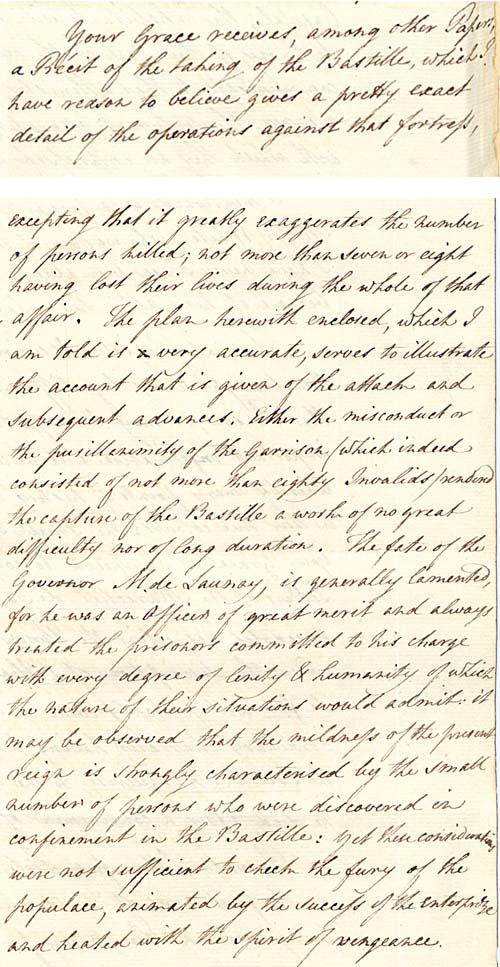 Your Grace receives, among other Papers,
a Precit of the taking of the Bastille, which I
have reason to believe gives a pretty exact
detail of the operations against that fortress,
excepting that it greatly exaggerates the number
of persons killed; not more than seven or eight
having lost their lives during the whole of that
affair. The plan herewith enclosed, which I
am told is very accurate, serves to illustrate
the account that is given of the attack and
subsequent advances. Either the misconduct or
the pusillanimity of the Garrison /which indeed
consisted of not more than eighty Invalids/ rendered
the capture of the Bastille a work of no great
difficulty nor of long duration. The fate of the
Governor M. de Launay, is generally lamented,
for he was an Officer of great merit and always
treated the prisoners committed to his charge
with every degree of lenity & humanity of which
the nature of their situations would admit: it
may be observed that the mildness of the present
reign is strongly characterised by the small
number of persons who were discovered in
confinement in the Bastille: yet these considerations
were not sufficient to check the fury of the
populace, animated by the success of the enterprize
and heated with the spirit of vengeance.